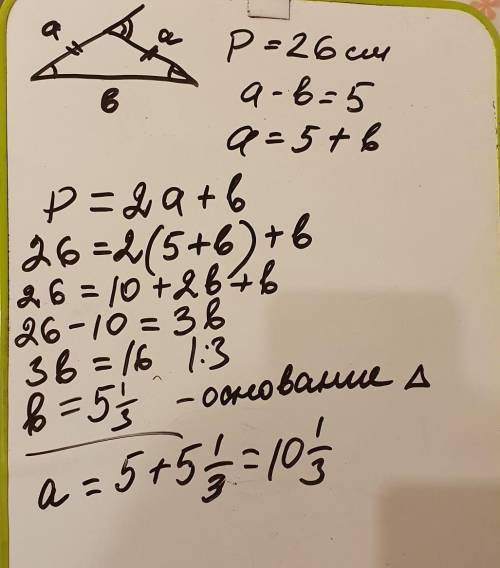 a a
в
P = 26 см
a - в = 5
a = 5 + в
P = 2a + в
26 = 2(5+в) + в
26 = 10 + 2в + в
26 - 10 = 3в
3в = 16 1:3
в = 5 1/3 - основание Δ
a = 5 + 5 1/3 = 10 1/3